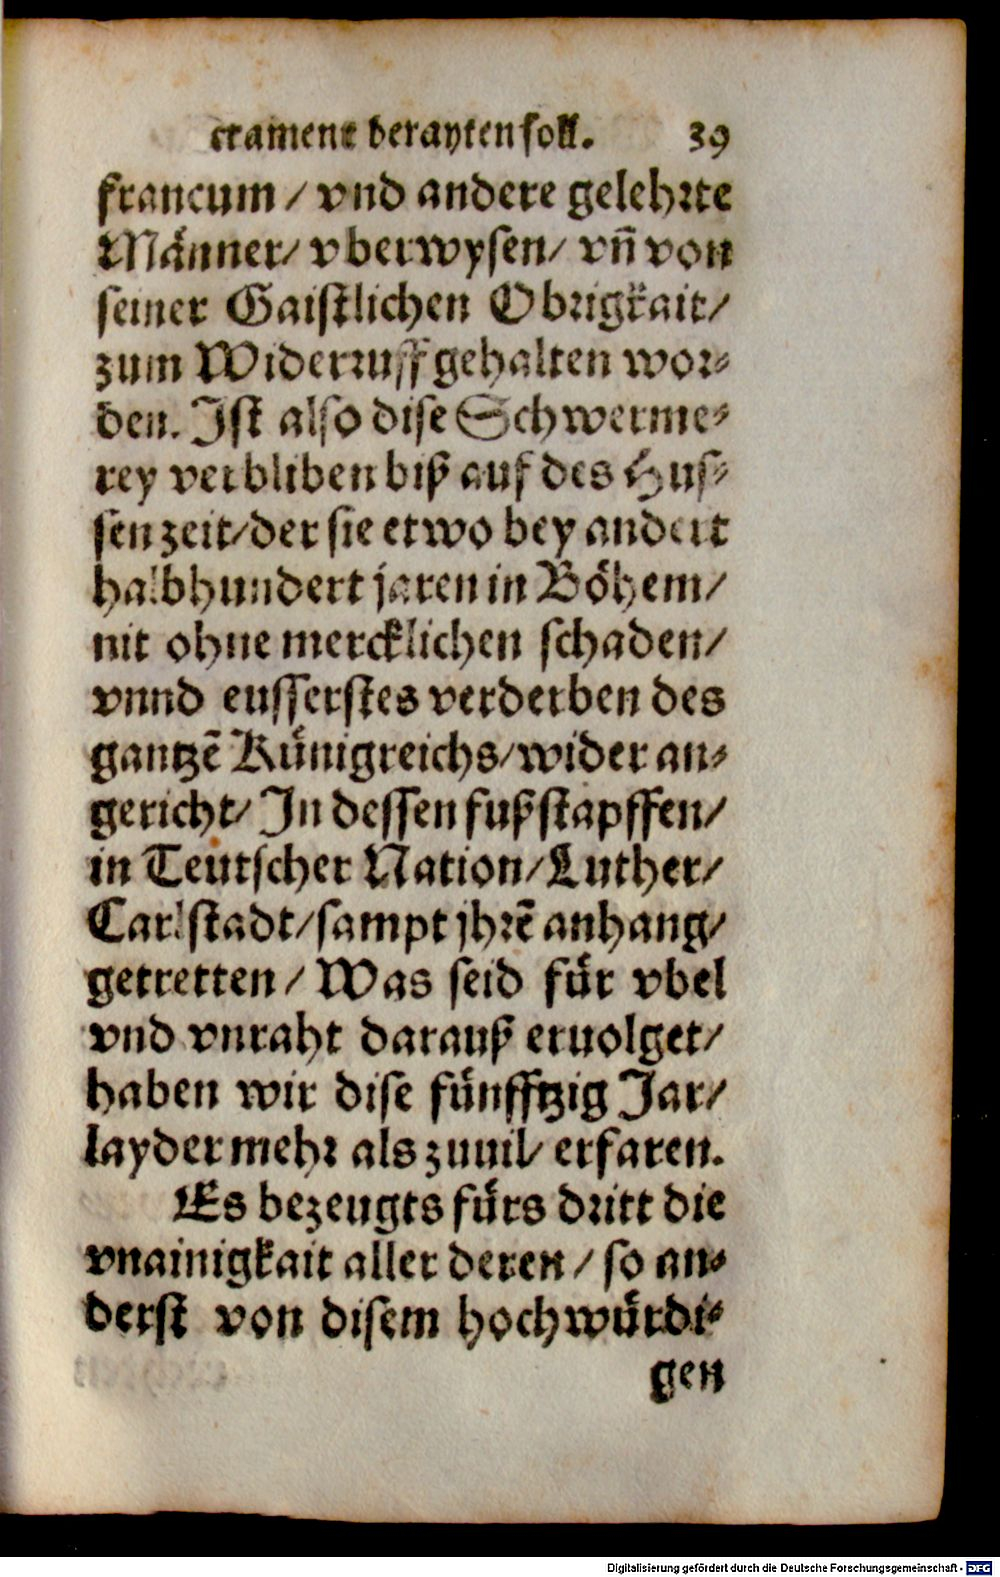 crament berayten soll. 39
francum / vnd andere gelehrte
Männer / vberwysen / vñ von
seiner Gaistlichen Obrigkait /
zum Widerruff gehalten wor-
den. Ist also dise Schwerme-
rey verbliben biß auf des Hus-
sen zeit / der sie etwo bey andert
halbhundert jaren in Böhem /
nit ohne mercklichen schaden /
vnnd eusserstes verderben des
gantzē Künigreichs / wider an-
gericht / In dessen fußstapffen /
in Teutscher Nation / Luther /
Carlstadt / sampt jhrē anhang /
getretten / Was seid für vbel
vnd vnraht darauß eruolget /
haben wir dise fünfftzig Jar /
layder mehr als zuuil / erfaren.
Es bezeugts fürs dritt die
vnainigkait aller deren / so an-
derst von disem hochwürdi-
gen
Digitalisierung gefördert durch die Deutsche Forschungsgemeinschaft - DFG